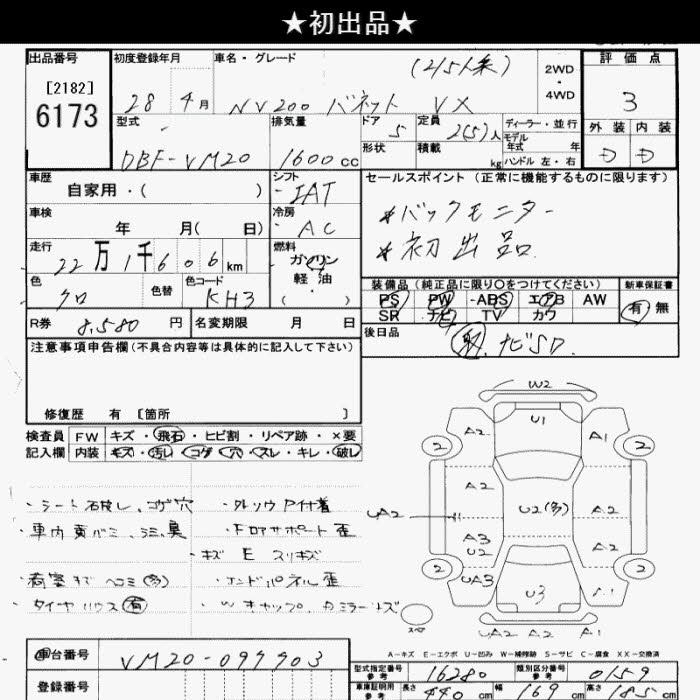 ★初出品★
出品番号 初度登録年月 車名・グレード (2/5人乗) 2WD・4WD 評価点
[2182]
6173 28 年 4月 NV200 バネット VX 3
型式 排気量 ドア 定員 ディーラー・並行 外装 内装
DBF-VM20 1600cc 5 2(5)人 モデル年式 年 D D
形状 積載 kg ハンドル 左・右
車歴 シフト セールスポイント(正常に機能するものに限ります)
自家用・( ) IAT
車検 冷房 *バックモニター
年 月( 日) AC *初出品
走行 燃料
22万1千606km ガソリン
軽油
( )
色 色替 色コード 装備品(純正品に限り○をつけてください) 新車保証書
クロ KH3 PS PW ABS エアB AW 有 無
SR ナビ TV カワ
R券 8,580円 名変期限 月 日 後日品
注意事項申告欄(不具合内容等は具体的に記入して下さい) ナビSD.
修復歴 有 [箇所 ]
検査員 FW キズ・飛石・ヒビ割・リペア跡・×要
記入欄 内装 キズ・汚レ・コゲ・穴・スレ・キレ・破レ
W2
A2 U1 A1
2 2
A2 U2(多) A2
UA2
A3 A2
U2
2 2
UA3 U3 A1
スペア
UA2 A2 A1
・シート 破レ、コゲ穴
・車内 黄バミ、シミ、臭
・荷室キズ ヘコミ(多)
・タイヤハウス(有)
・Fロアサポート歪
・キズ E スリキズ
・エンドパネル歪
・Wキャップ、Dミラーキズ
A-キズ E-エクボ U-凹み W-補修跡 S-サビ C-腐食 XX-交換済
車台番号 VM20-097903
型式指定番号 参考 16280 類別区分番号 参考 0159
登録番号
車庫証明用 参考 長さ 440cm 幅 169cm 高さ 185cm